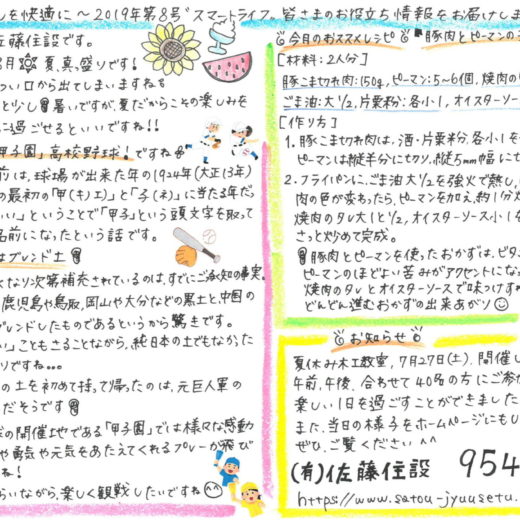 しを快適に～2019年第8号 "スマートライフ 皆さまのお役立ち情報をお届けしま
佐藤住設です。
8月 夏真っ盛りです！
つい口から出てしまいますね
と少し暑いですが、夏だからこその楽しみを
に過ごせるといいですね!!
甲子園」高校野球！ですね
前は、球場が出来た年の1924年(大正13年)
の最初の「甲(キノエ)」と「子(ネ)」に当たる年だっ
いい」ということで「甲子」という頭文字を取って
名前になったという話です。
はブレンド土
くなり次第補充されているのは、すでにご承知の事実。
鹿児島や鳥取、岡山や大分などの黒土と、中国の
ブレンドしたものであるというから驚きです。
い」こともさることながら、純日本の土でもなかった
りですね...
の土を初めて持って帰ったのは、元巨人軍の
だそうです
の開催地である「甲子園」では様々な感動
や勇気や元気をあたえてくれるプレーが飛び
ね！
らいながら、楽しく観戦したいですね
今月のおススメレシピ 豚肉とピーマンの
[材料：2人分]
豚こま切れ肉：150g、ピーマン：5～6個、焼肉の
ごま油：大1/2、片栗粉：各小1、オイスターソー
[作り方]
1. 豚こま切れ肉は、酒・片栗粉 各小1を
ピーマンは縦半分に切り、縦5mm幅に
2. フライパンに、ごま油 大1/2を強火で熱し、
肉の色が変わったら、ピーマンを加え、約1分
焼肉のタレ大1と1/2、オイスターソース小1
さっと炒めて完成。
豚肉とピーマンを使ったおかずは、ビタ
ピーマンのほどよい苦みがアクセントにな
焼肉のタレとオイスターソースで味つけす
どんどん進むおかずの出来あがり
お知らせ
夏休み木工教室、7月27日(土)、開催し
午前、午後、合わせて40名の方にご参
楽しい1日を過ごすことができました
また、当日の様子をホームページにも
ぜひ、ご覧ください ^^
(有)佐藤住設 954
https://www.satou-jyuusetu.